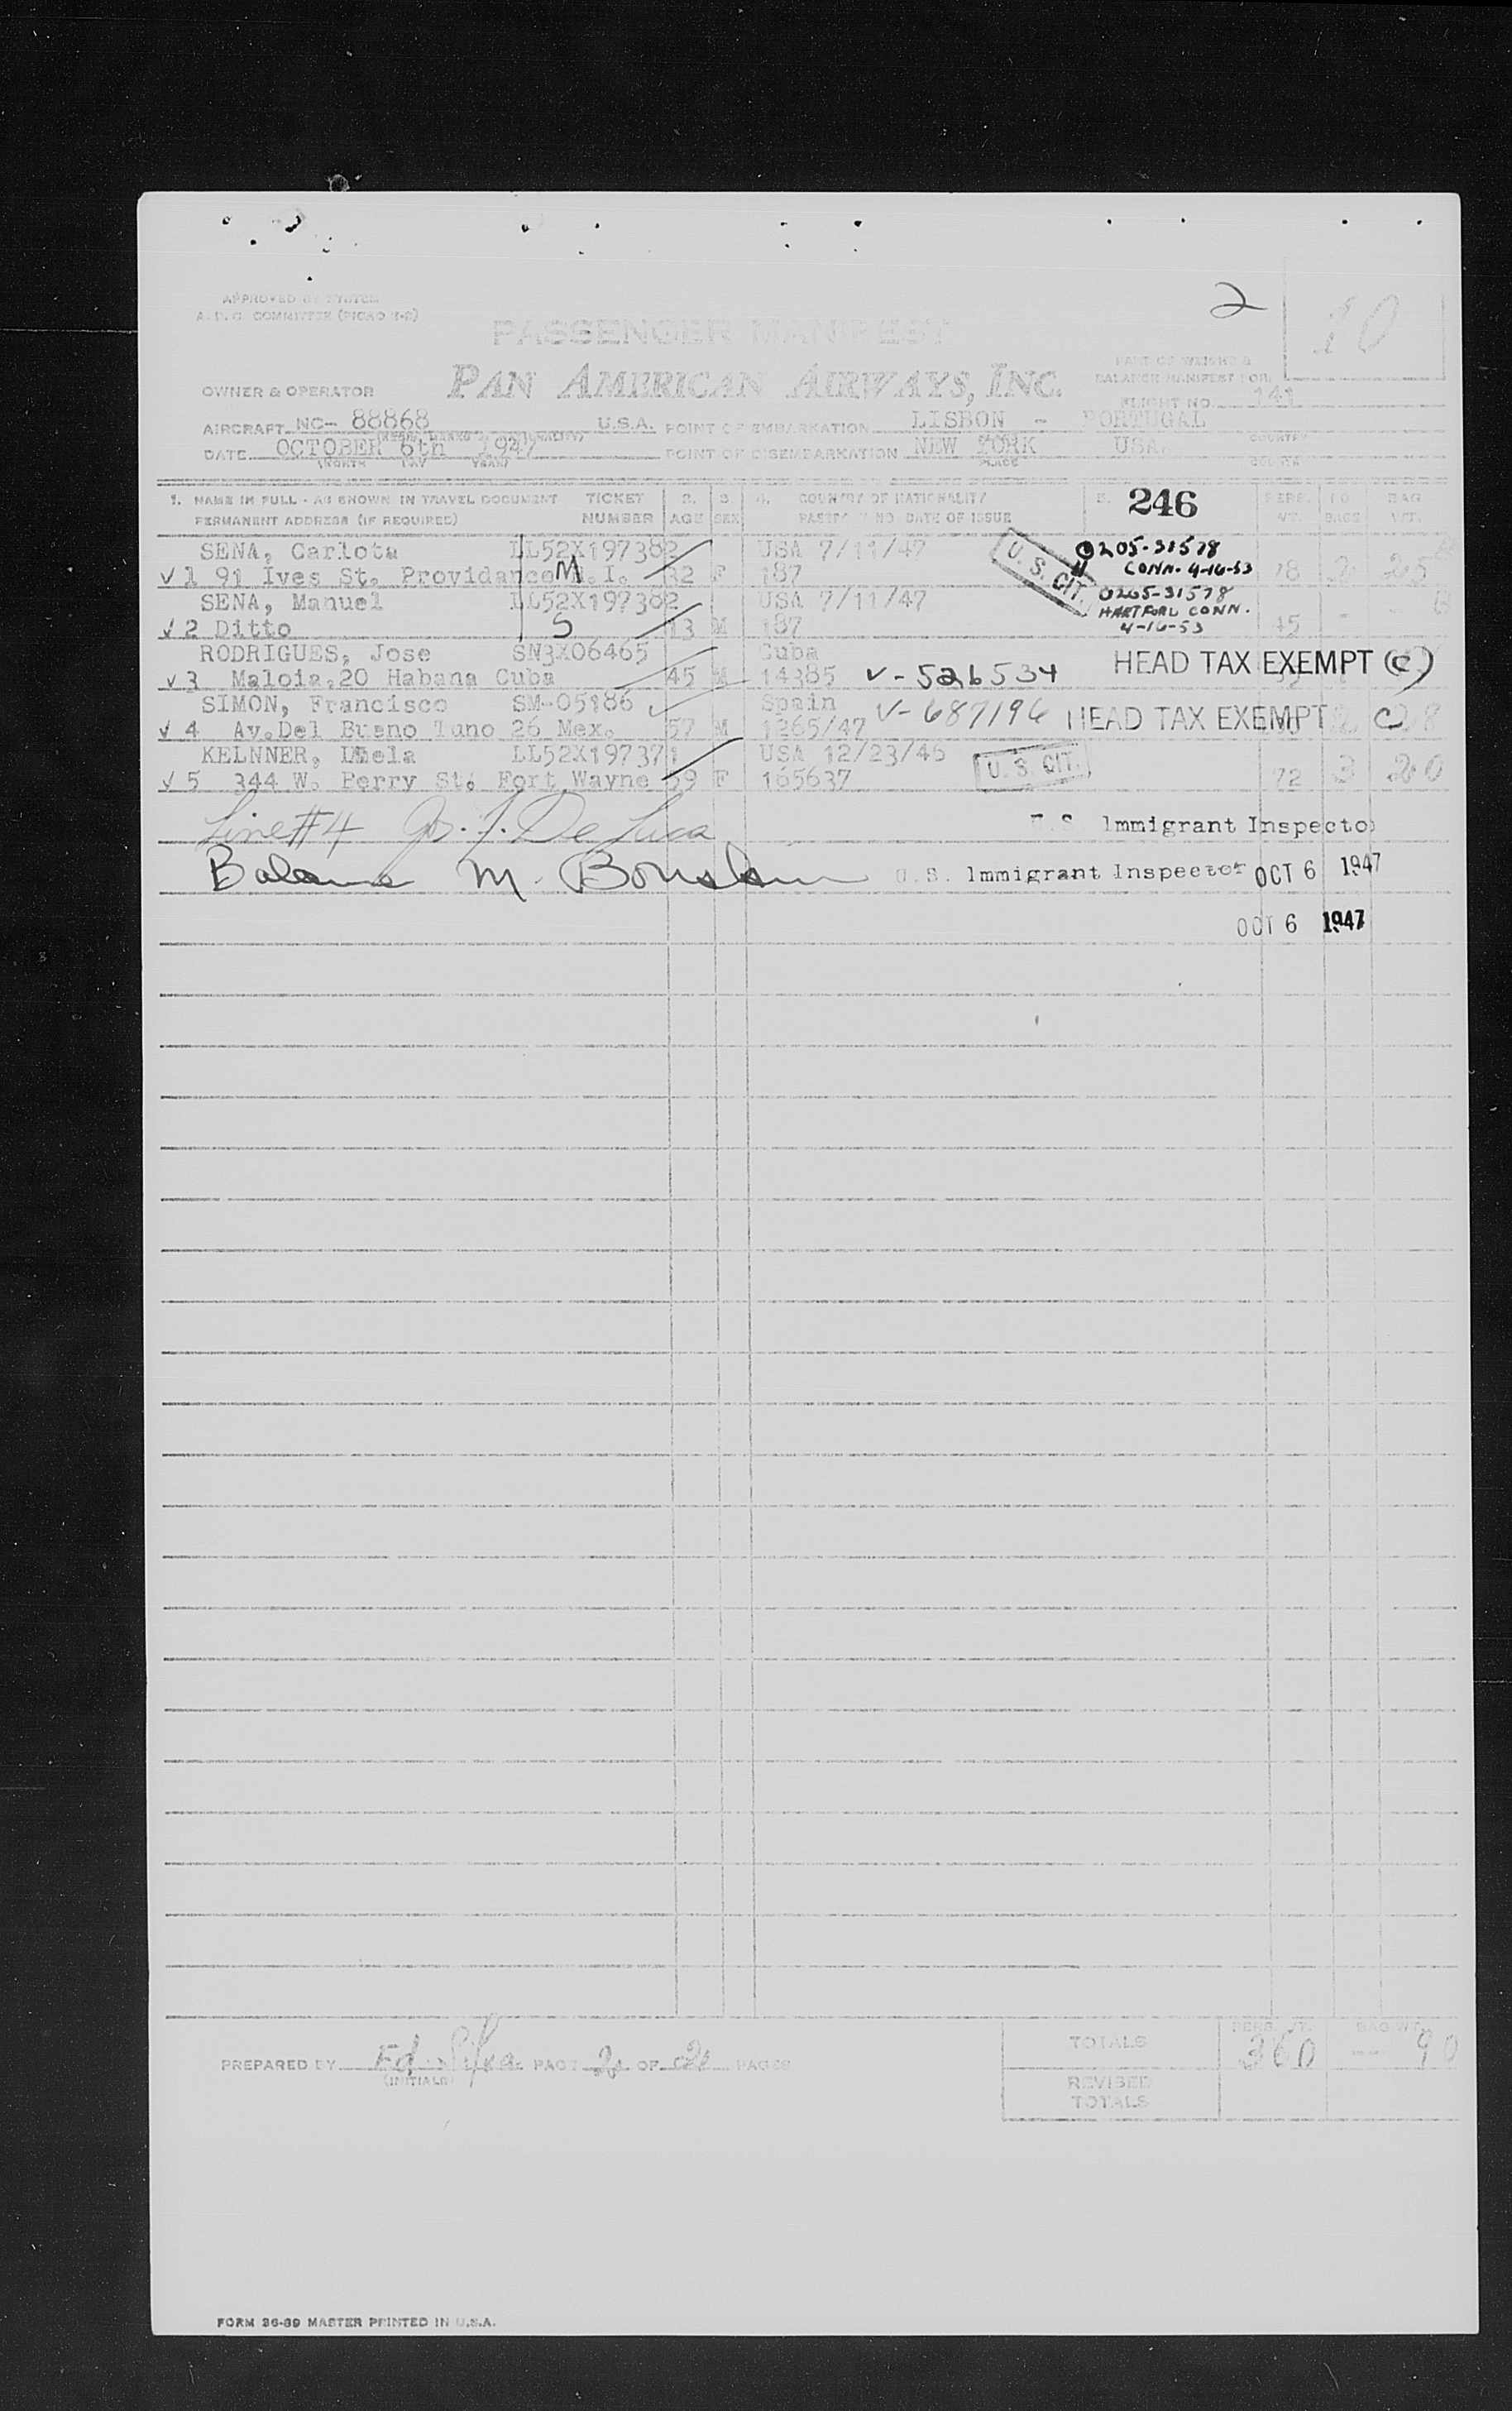 2
10
APPROVED BY SYSTEM
A.D.C. COMMITTEE (PICAO 3-2)
PASSENGER MANIFEST
PAN AMERICAN AIRWAYS, INC.
PART OF WEIGHT &
BALANCE MANIFEST FOR
OWNER & OPERATOR
FLIGHT NO. 141
AIRCRAFT NC- 88868 U.S.A. POINT OF EMBARKATION LISBON - PORTUGAL
DATE OCTOBER 6th 1947 POINT OF DISEMBARKATION NEW YORK USA.
(MONTH DAY YEAR) PLACE COUNTRY
1. NAME IN FULL - AS SHOWN IN TRAVEL DOCUMENT TICKET 2. 3. 4. COUNTRY OF NATIONALITY 5. 246 PERS. NO. BAG
PERMANENT ADDRESS (IF REQUIRED) NUMBER AGE SEX PASSPORT NO. DATE OF ISSUE WT. BAGS WT.
SENA, Carlota LL52X197382 USA 7/11/47 U. S. CIT. 0205-31578
√ 1 91 Ives St. Providance R.I. M 32 F 187 CONN. 4-16-53 78 2 25
SENA, Manuel LL52X197382 USA 7/11/47 0265-31578
√ 2 Ditto S 13 M 187 HARTFORD CONN. 45 -
4-16-53
RODRIGUES, Jose SN3X06465 Cuba
√ 3 Maloia,20 Habana Cuba 45 M 14385 V-526534 HEAD TAX EXEMPT (C)
SIMON, Francisco SM-05186 Spain
√ 4 Av.Del Bueno Tuno 26 Mex. 57 M 1265/47 V-687196 HEAD TAX EXEMPT C 28
KELNNER, Imela LL52X197371 USA 12/23/46
√ 5 344 W. Berry St. Fort Wayne 59 F 165637 U. S. CIT. 72 3 20
Line #4 Jos. J. De Luca U.S. Immigrant Inspector
M. U.S. Immigrant Inspector OCT 6 1947
OCT 6 1947
PREPARED BY Ed. Silva PAGE 2 OF 2 PAGES
(INITIALS)
TOTALS PERS. WT. 360 BAG WT. 90
REVISED
TOTALS
FORM 36-89 MASTER PRINTED IN U.S.A.